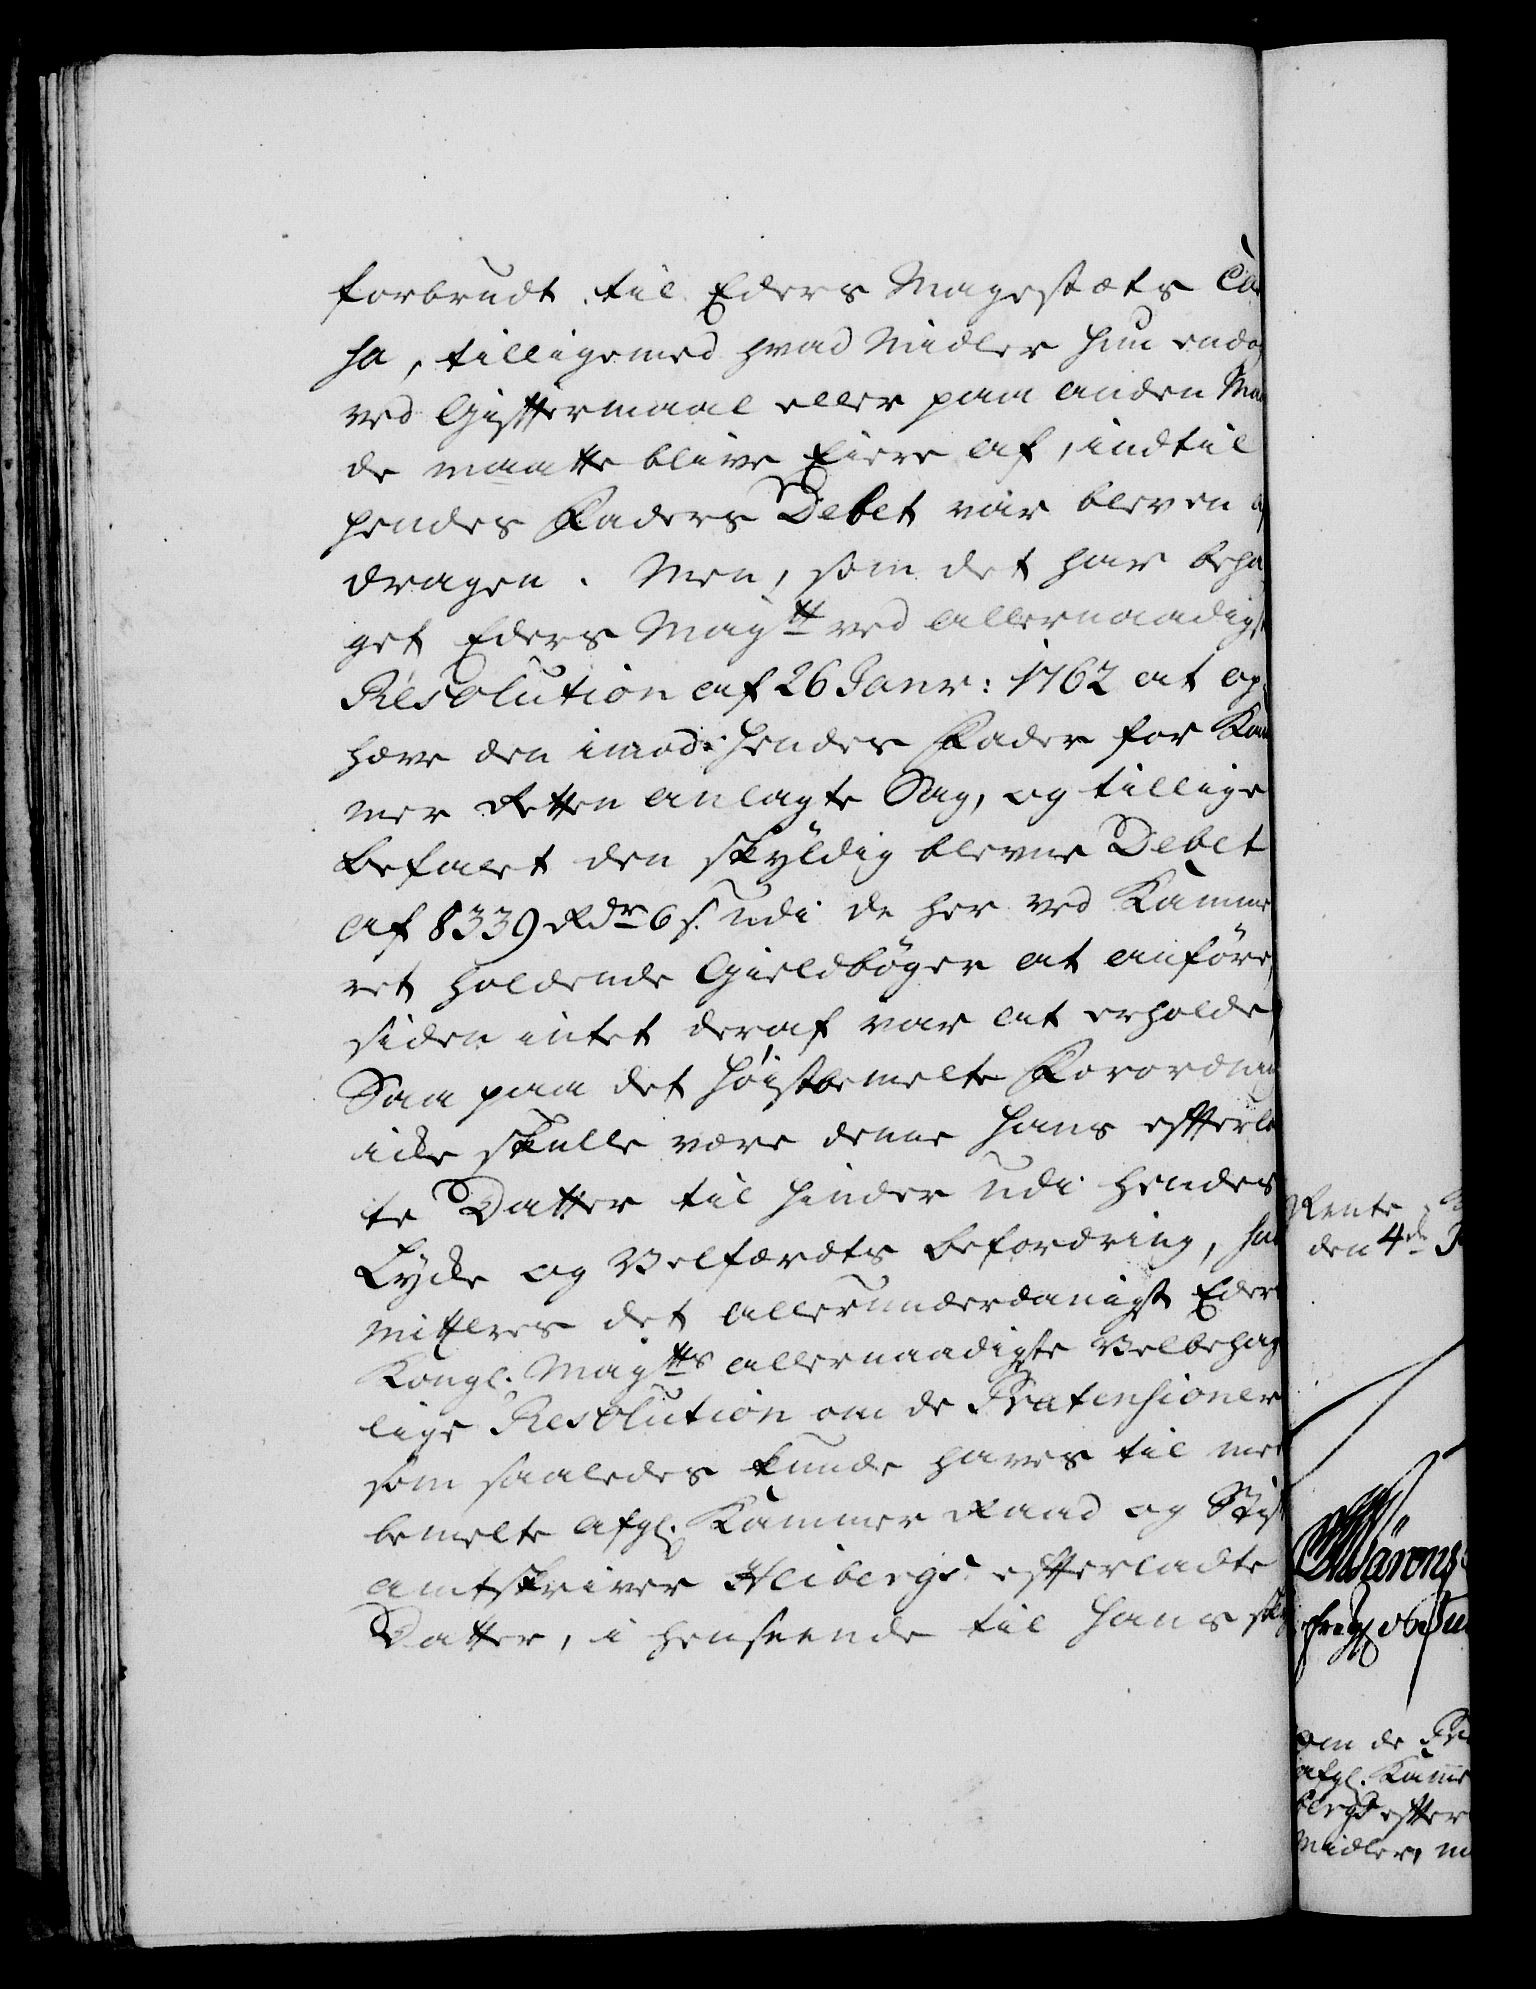 forbrudt til Eders Mayestæts Ca
sa, tilligemed hvad Midler hun endog
ved Gifftermaal eller paa anden Maa
de maatte blive Eiere af, indtil
hendes Faders Debet var bleven af
dragen. Men, som det har beha
get Eders Mayᵗᵗ ved allernaadigst
Resolution af 26 Janr: 1762 at op
hæve den imod hendes Fader for Kam
mer Retten anlagte Sag, og tillige
befalet den skyldig blevne Debet
af 8339 Rdr 6 s. udi de her ved Kamme
ret holdende Gieldbøger at anføre,
siden intet deraf var at erholde,
Saa paa det høistbemelte Forordning
icke skulle være denne hans effterla
te Datter til hinder udi hendes
Lycke og Velfærdts befordring, sub
mitteres det allerunderdanigst Eders
Kongl. Mayᵗᵗˢ allernaadigste Velbehag
lige Resolution om de Prætensioner
som saaledes kunde haves til meer
bemelte afgl. Kammer Raad og Stift
amtskriver Heibergs effterladte
Datter, i henseende til hans sky
Rente
den 4de J
om de Præ
afgl. Kamme
bergs effter
Midler, m